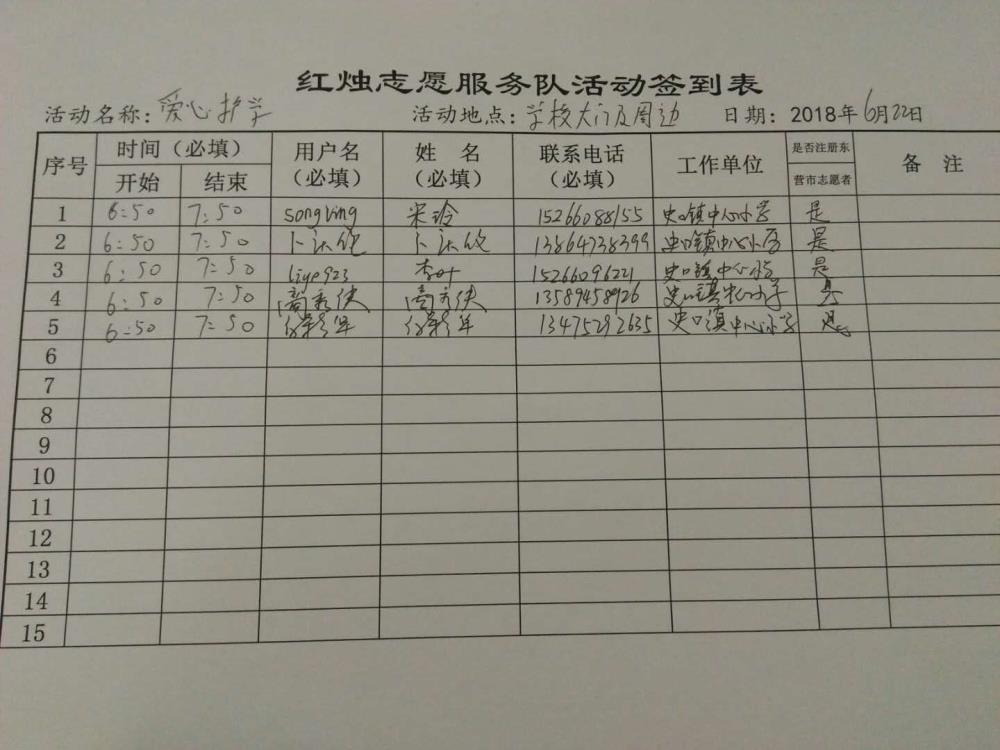 红烛志愿服务队活动签到表
活动名称：爱心护学 活动地点：学校大门及周边 日期：2018年6月22日
序号 时间（必填） 用户名（必填） 姓名（必填） 联系电话（必填） 工作单位 是否注册东营市志愿者 备注
开始 结束
1 6:50 7:50 songling 宋玲 15266088155 史口镇中心小学 是
2 6:50 7:50 13864738399 史口镇中心小学 是
3 6:50 7:50 liye923 李叶 15266096221 史口镇中心小学 是
4 6:50 7:50 13589458926 史口镇中心小学 是
5 6:50 7:50 13475292635 史口镇中心小学 是
6
7
8
9
10
11
12
13
14
15